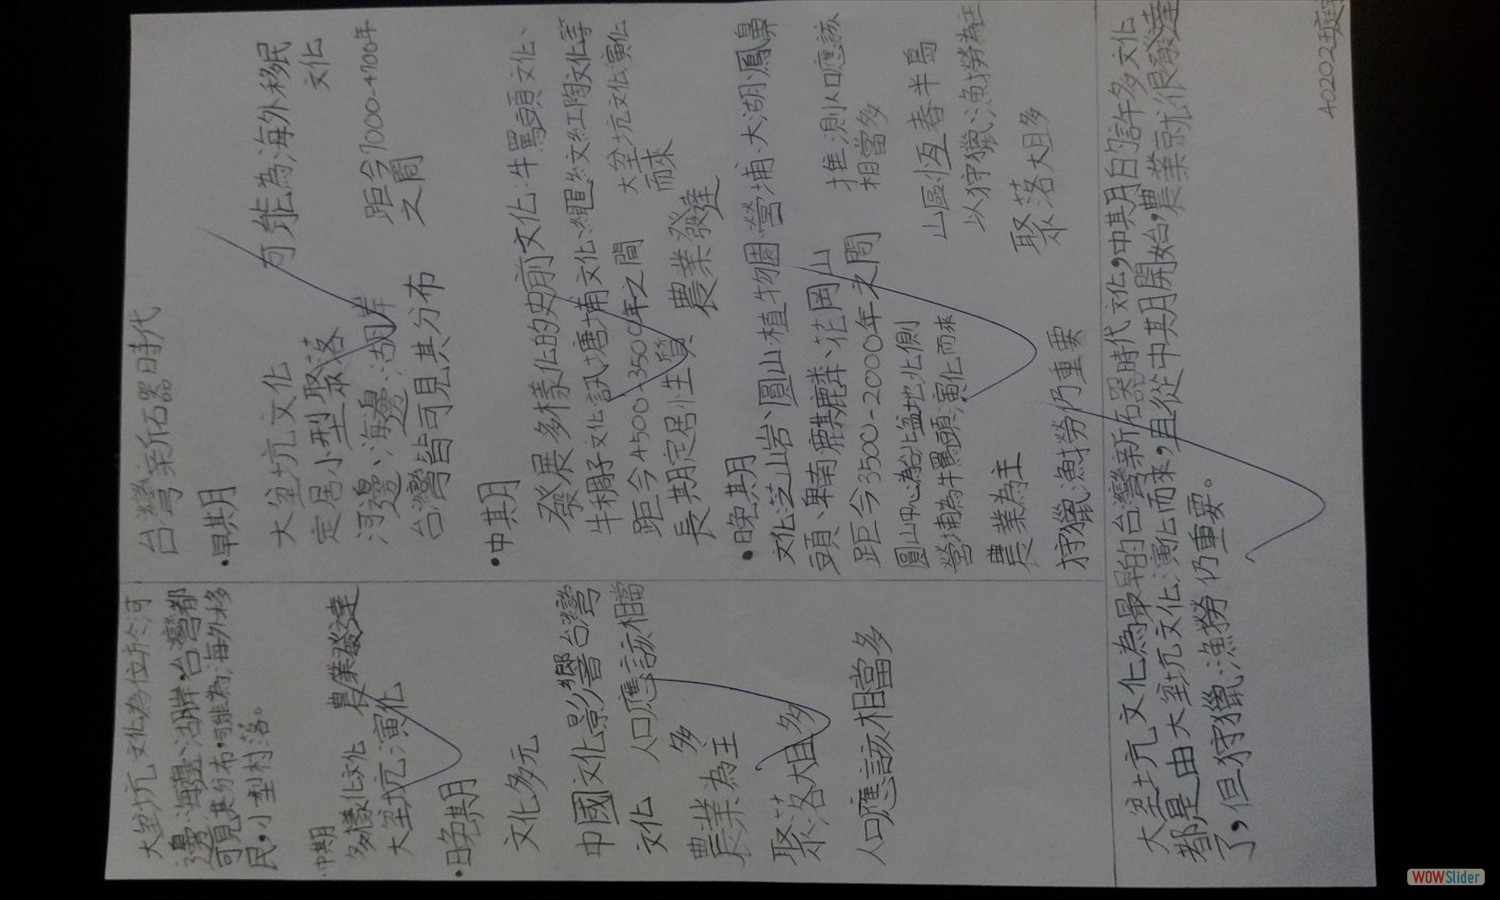 台灣新石器時代
•早期
大坌坑文化
可能為海外移民
文化
定居小型聚落
河邊、海邊、湖岸
距今7000-4700年
之間
台灣皆可見其分布
•中期
發展多樣化的史前文化:牛罵頭文化、
牛稠子文化訊塘埔文化:繩紋紅陶文化等
距今4500-3500年之間
大坌坑文化演化
而來
長期定居性質
農業發達
•晚期
文化:芝山岩、圓山、植物園、營埔、大湖、鳳鼻
頭、卑南、麒麟、花岡山
距今3500-2000年之間
推測人口應該
相當多
圓山中心為台北盆地北側
營埔為牛罵頭演化而來
山區、恆春半島
以狩獵漁撈為主
農業為主
聚落大且多
狩獵魚撈仍重要
大坌坑文化為位於河
邊、海邊、湖岸,台灣都
可見其分布,可能為海外移
民,小型村落。
•中期
多樣化文化
農業發達
大坌坑演化
•晚期
文化多元
中國文化影響台灣
文化
人口應該相當
多
農業為主
聚落大且多
人口應該相當多
大坌坑文化為最早的台灣新石器時代文化,中期的許多文化
都是由大坌坑文化演化而來,且從中期開始,農業就很發達
了,但狩獵漁撈仍重要。
WOWSlider